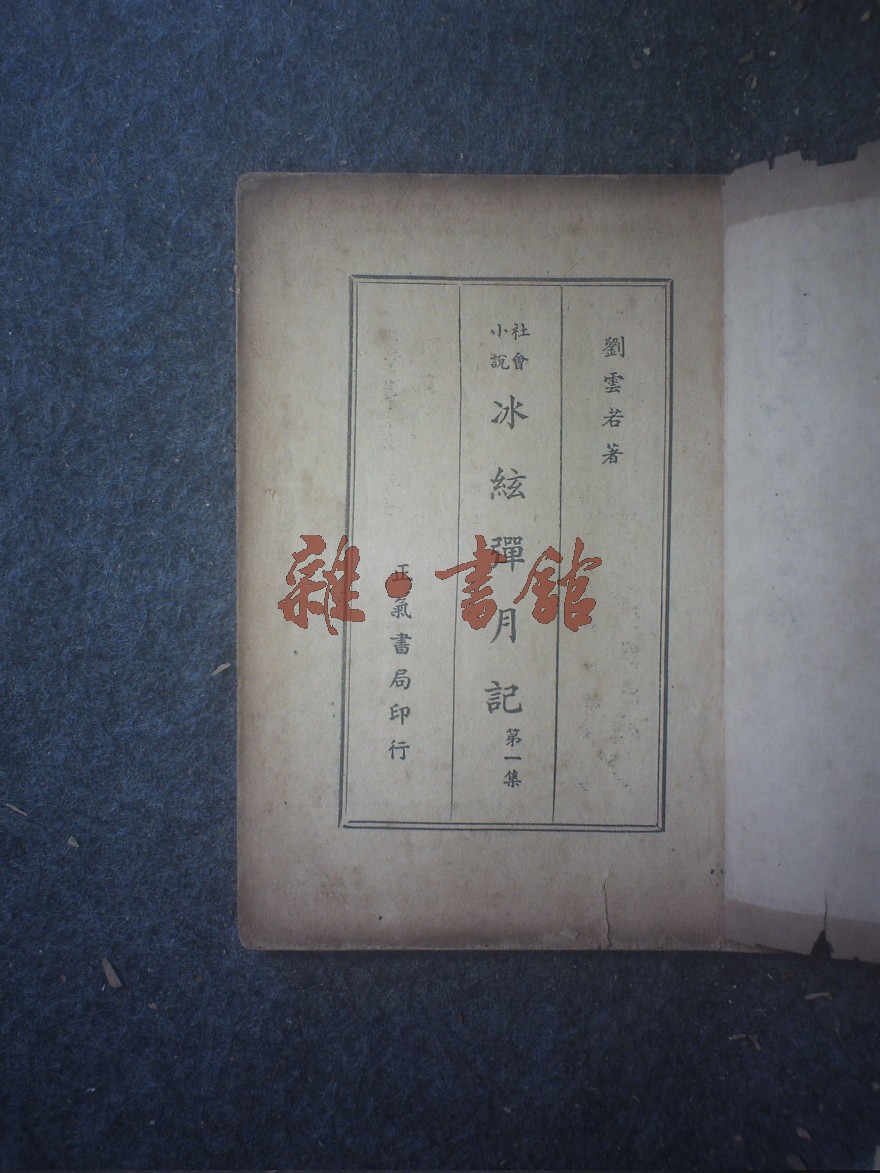 劉雲若著
社會
小說
冰絃彈月記
第一集
正氣書局印行
雜·書館